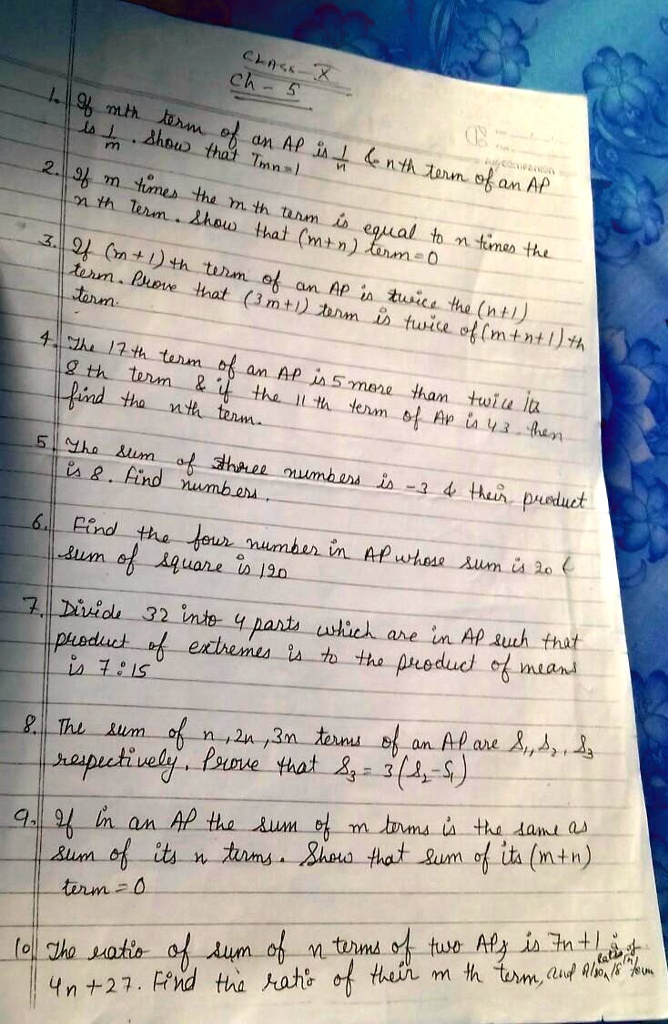 CLASS-X
Ch-5
1. If mth term of an AP is 1/n & nth term of an AP
is 1/m. Show that Tmn=1
2. If m times the m th term is equal to n times the
n th Term. Show that (m+n) term=0
3. If (m+1)th term of an AP is twice the (n+1)
term. Prove that (3m+1) term is twice of (m+n+1)th
term.
4. The 17th term of an AP is 5 more than twice its
8 th term & if the 11 th term of AP is 43. then
find the nth term.
5 The sum of three numbers is -3 & their product
is 8. Find numbers.
6. Find the four number in AP whose sum is 20 &
sum of square is 120
7. Divide 32 into 4 parts which are in AP such that
product of extremes is to the product of means
is 7:15
8. The sum of n, 2n, 3n terms of an AP are S₁, S₂, S₃
respectively. Prove that S₃ = 3(S₂-S₁)
9. If in an AP the sum of m terms is the same as
sum of its n terms. Show that sum of its (m+n)
term = 0
10 The ratio of sum of n terms of two APs is 7n+1:
4n+27. Find the ratio of their m th term, and Also Ratio of 18 term